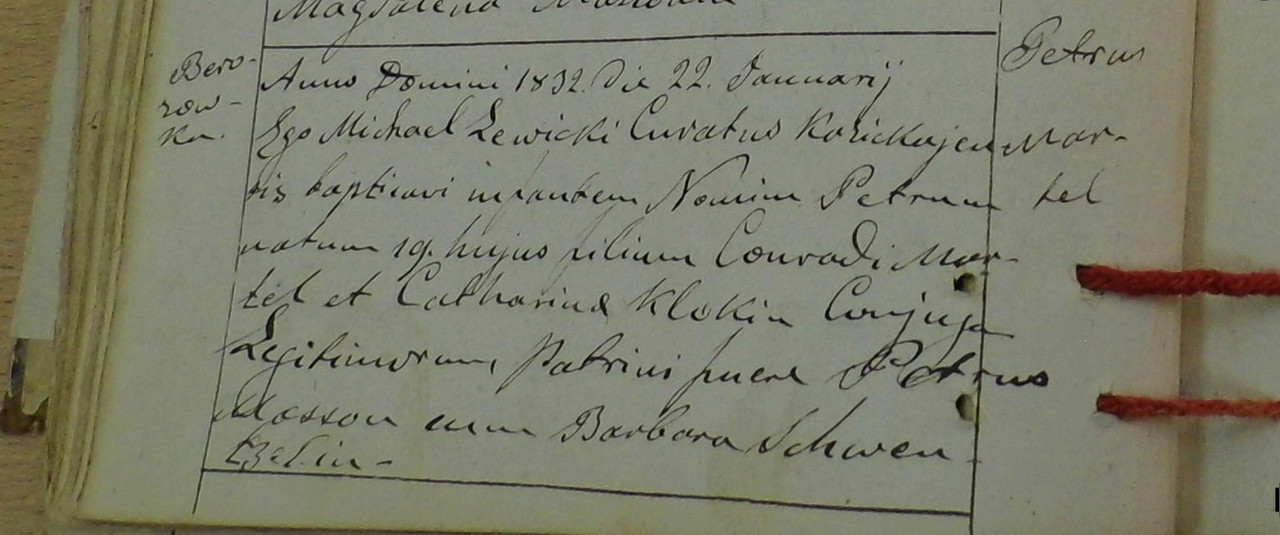 Magdalena
Bero-
zow-
ka.
Anno Domini 1832. Die 22. Januarij
Ego Michael Lewicki Curatus Kozickajen
sis baptizavi infantem Nomine Petrum
natum 19. hujus filium Conradi Mar-
tel et Catharina Klokin Conjugu
Legitimorum, Patrini fuere Petrus
Masson cum Barbara Schwen
tzelin-
Petrus
Mar-
tel